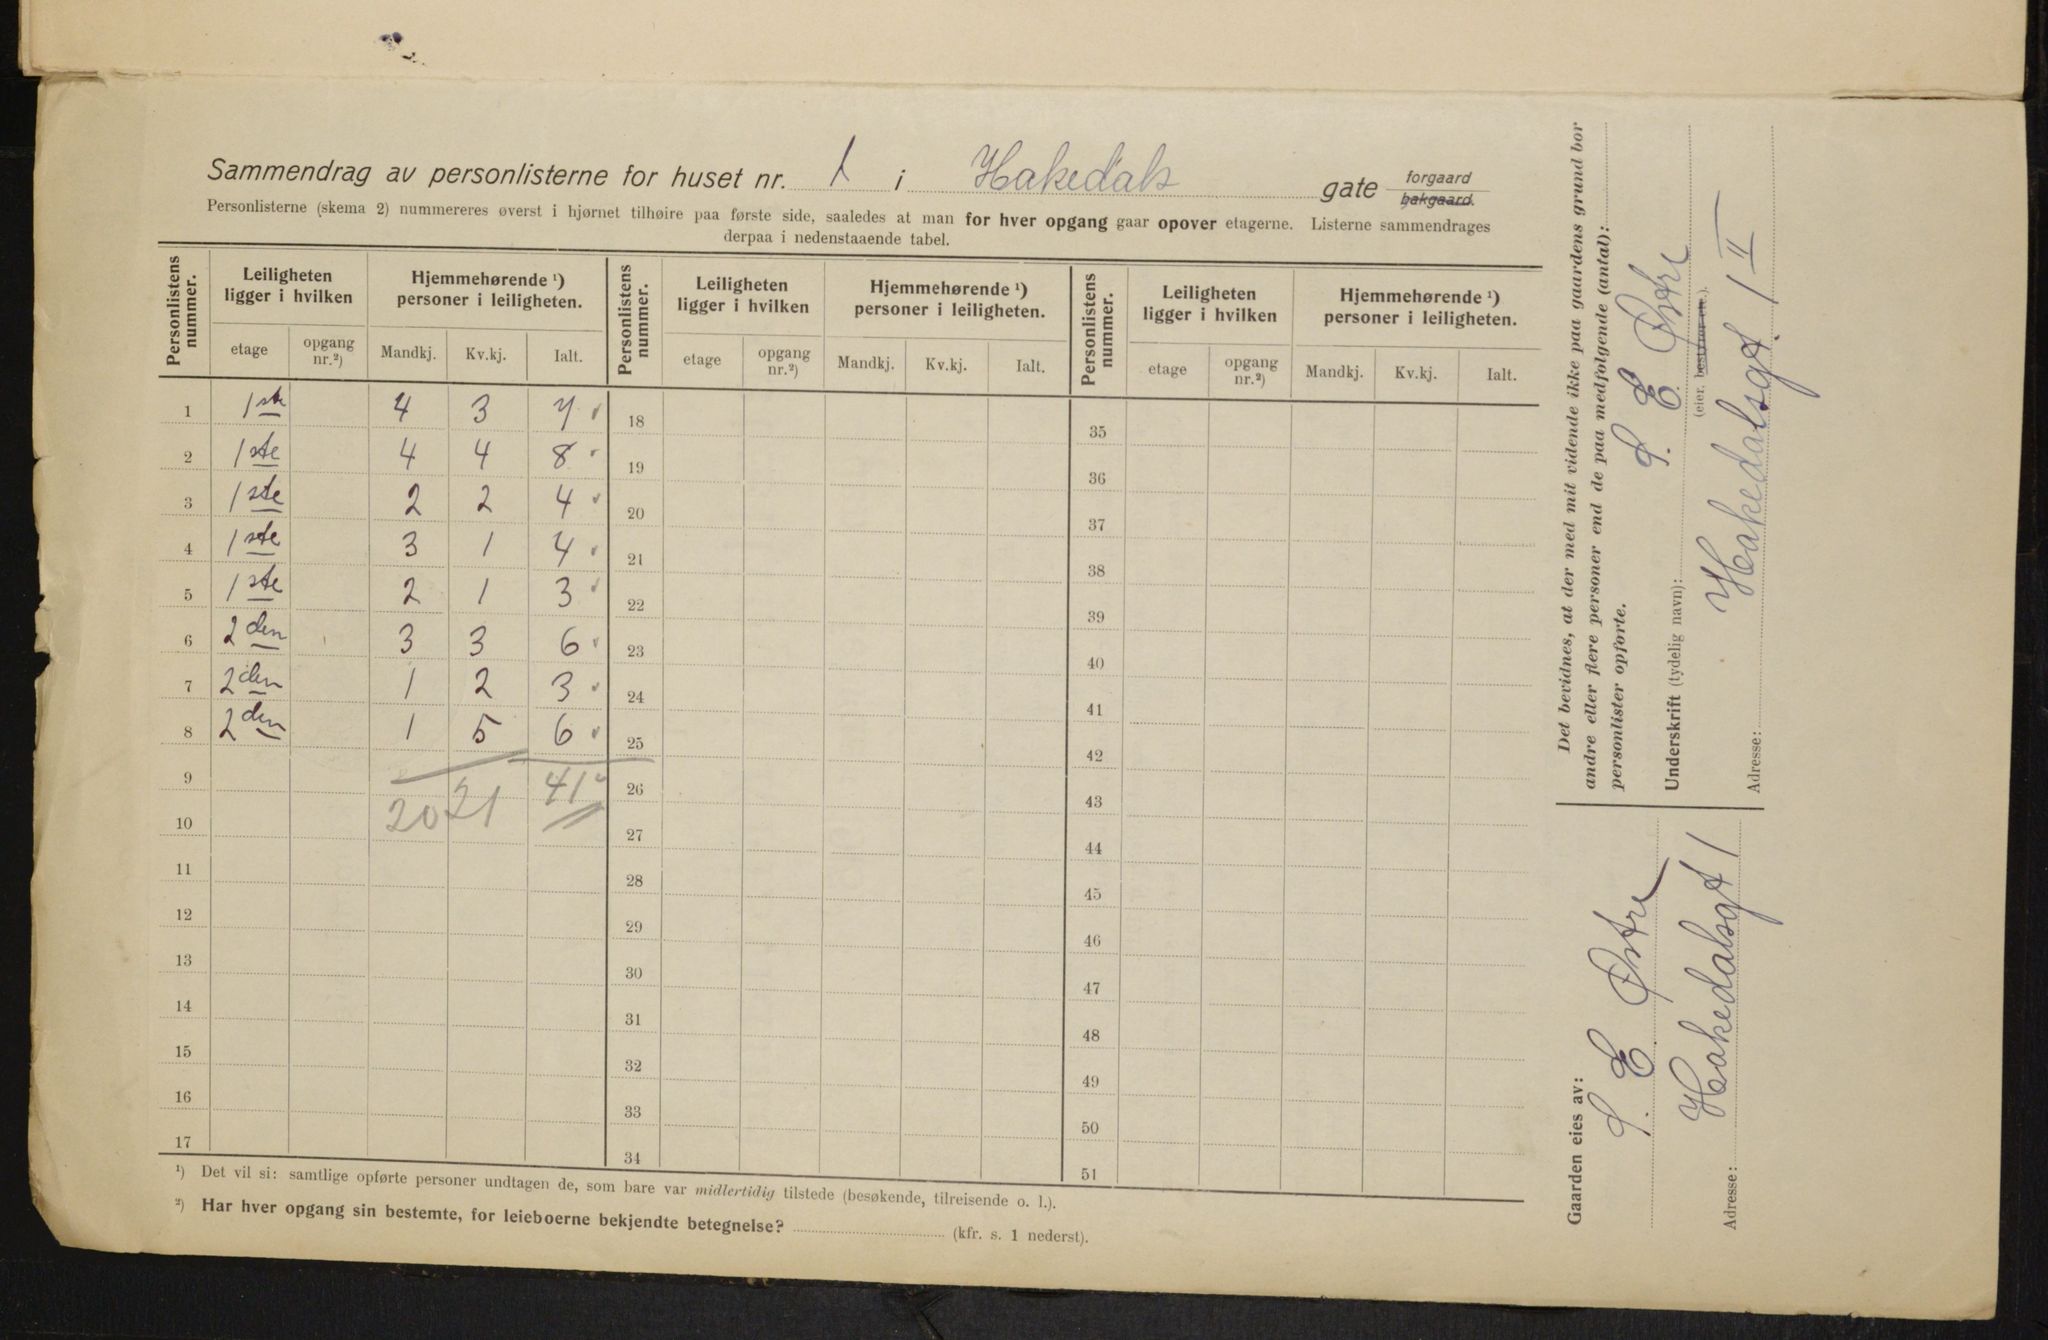 Sammendrag av personlisterne for huset nr. 1 i Hakedals gate forgaard bakgaard.
Personlisterne (skema 2) nummereres øverst i hjørnet tilhøire paa første side, saaledes at man for hver opgang gaar opover etagerne. Listerne sammendrages
derpaa i nedenstaaende tabel.
Personlistens nummer. Leiligheten ligger i hvilken Hjemmehørende ¹) personer i leiligheten. Personlistens nummer. Leiligheten ligger i hvilken Hjemmehørende ¹) personer i leiligheten. Personlistens nummer. Leiligheten ligger i hvilken Hjemmehørende ¹) personer i leiligheten.
etage opgang nr.²) Mandkj. Kv.kj. Ialt. etage opgang nr.²) Mandkj. Kv.kj. Ialt. etage opgang nr.²) Mandkj. Kv.kj. Ialt.
1 1ste 4 3 7 18 35
2 1ste 4 4 8 19 36
3 1ste 2 2 4 20 37
4 1ste 3 1 4 21 38
5 1ste 2 1 3 22 39
6 2den 3 3 6 23 40
7 2den 1 2 3 24 41
8 2den 1 5 6 25 42
9 20 21 41 26 43
10 27 44
11 28 45
12 29 46
13 30 47
14 31 48
15 32 49
16 33 50
17 34 51
¹) Det vil si: samtlige opførte personer undtagen de, som bare var midlertidig tilstede (besøkende, tilreisende o. l.).
²) Har hver opgang sin bestemte, for leieboerne bekjendte betegnelse? (kfr. s. 1 nederst).
Det bevidnes, at der med mit vidende ikke paa gaardens grund bor
andre eller flere personer end de paa medfølgende (antal):
personlister opførte.
S. E. Østre
Underskrift (tydelig navn):
(eier, bestyrer etc.).
Hakedalsgt. 1 II
Adresse:
Gaarden eies av:
S. E. Østre
Hakedalsgt 1
Adresse: